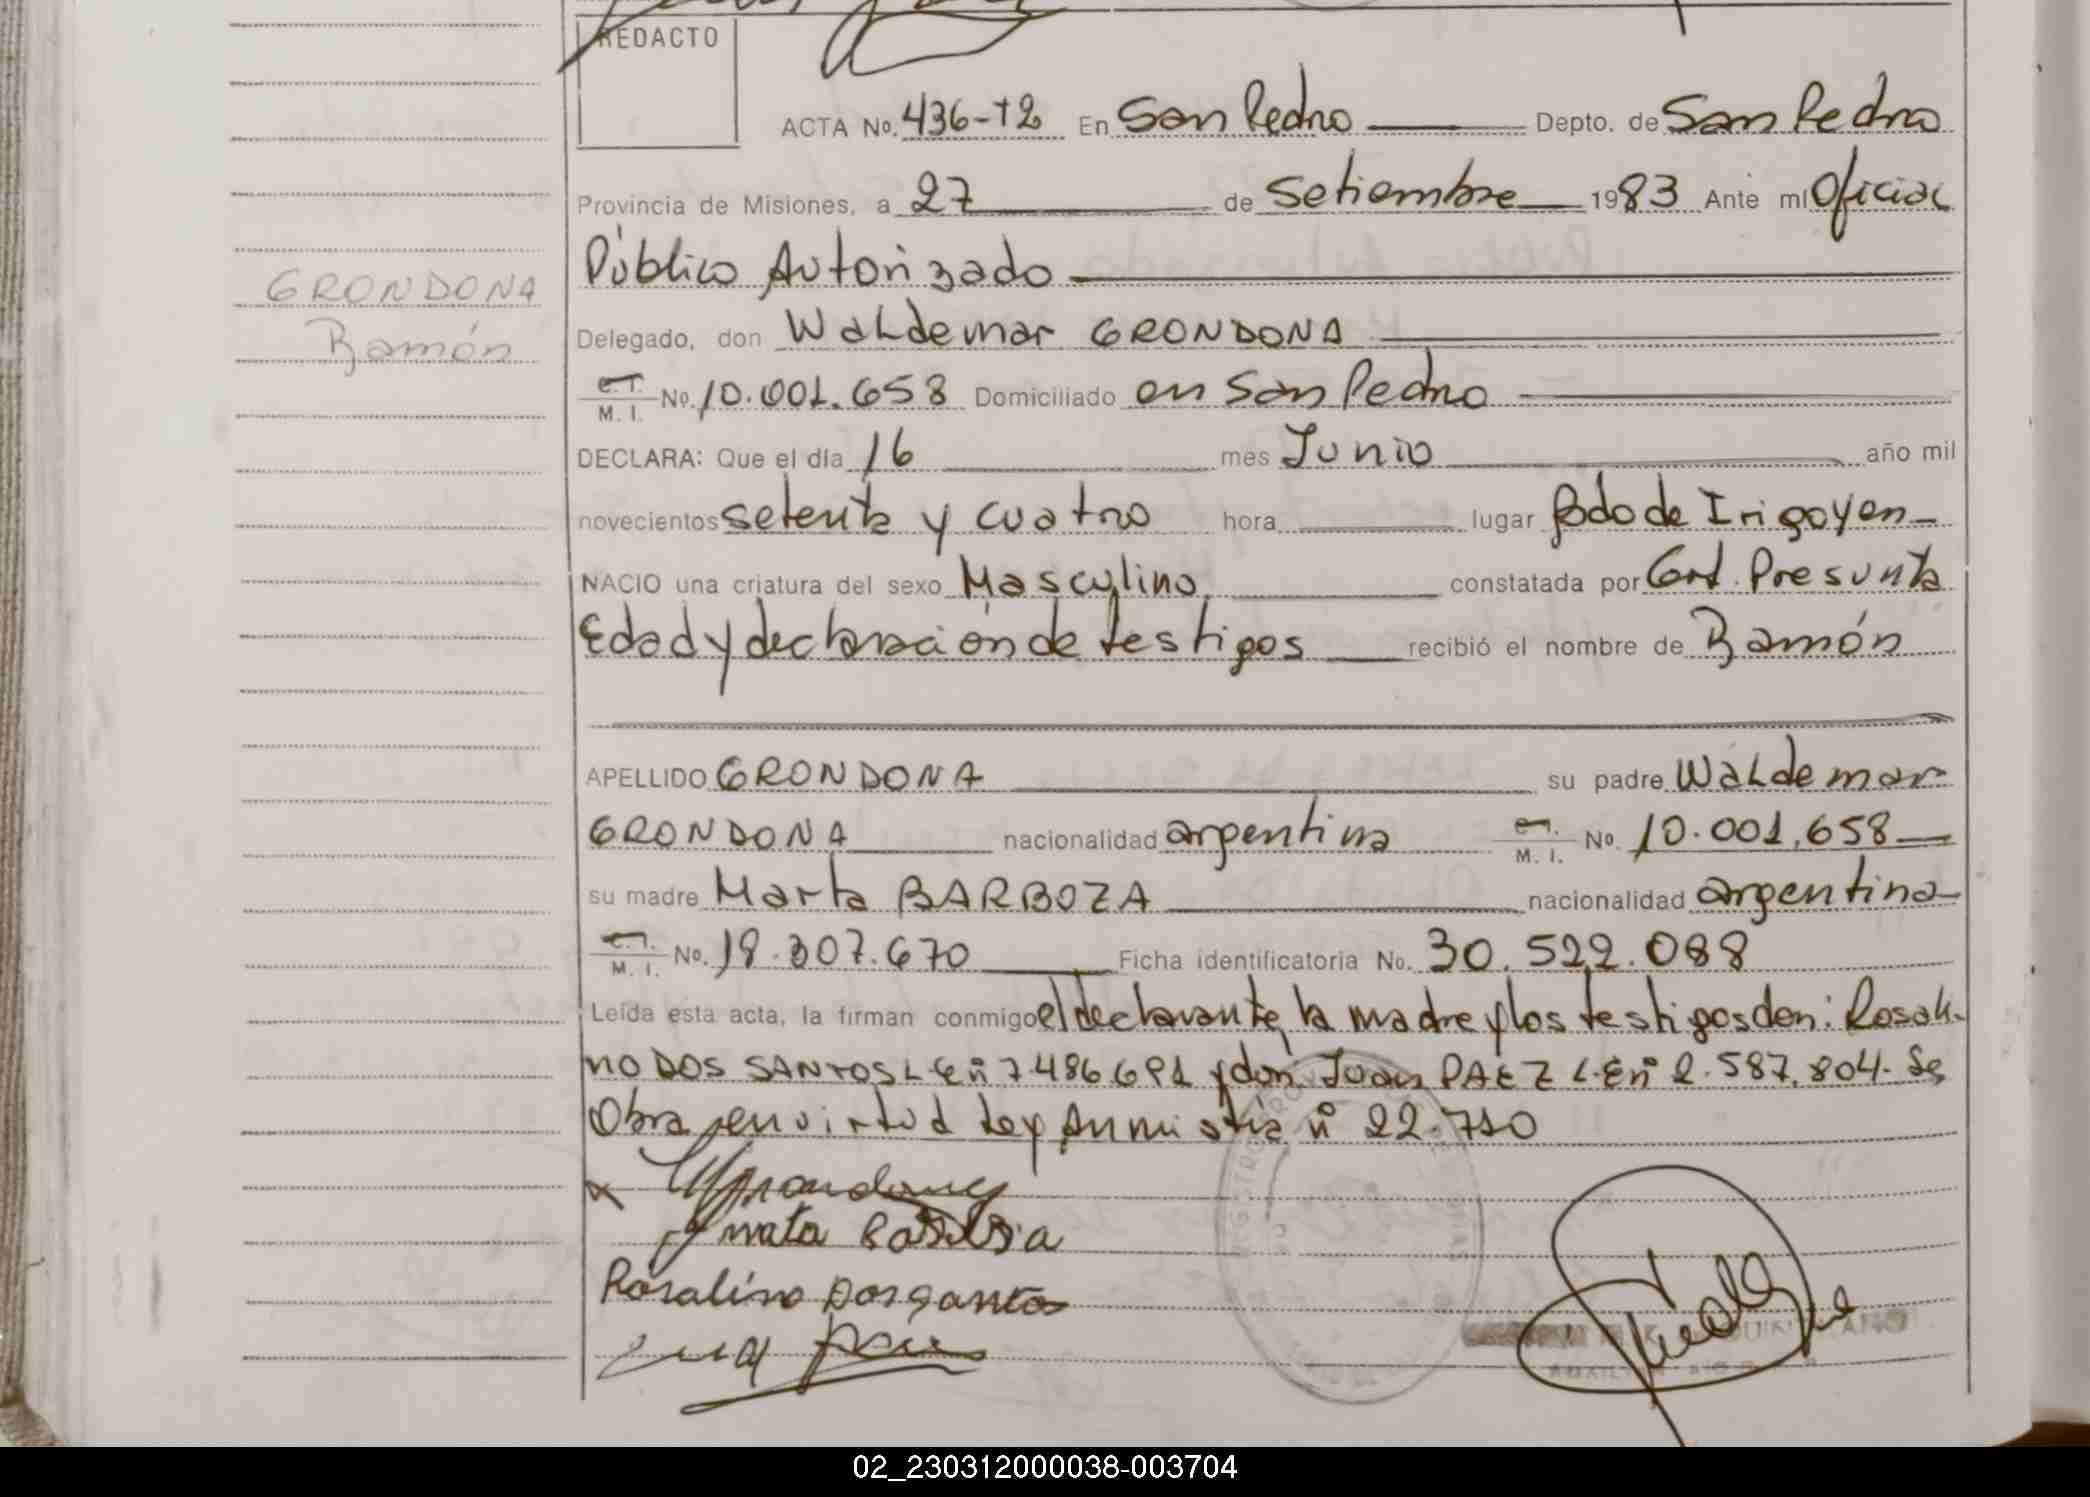 REDACTO
ACTA No. 436-T2 En San Pedro Depto. de San Pedro
Provincia de Misiones, a 27 de Setiembre 1983 Ante mí Oficial
Público Autorizado
GRONDONA
Ramón
Delegado, don Waldemar GRONDONA
C.I. M. I. No. 10.001.658 Domiciliado en San Pedro
DECLARA: Que el día 16 mes Junio año mil
novecientos setenta y cuatro hora lugar Bdo de Irigoyen
NACIO una criatura del sexo Masculino constatada por Cert. Presunta
Edad y declaración de testigos recibió el nombre de Ramón
APELLIDO GRONDONA su padre Waldemar
GRONDONA nacionalidad argentina C.I. M. I. No. 10.001.658
su madre Marta BARBOZA nacionalidad argentina
C.I. M. I. No. 18.307.670 Ficha identificatoria No. 30.522.088
Leída esta acta, la firman conmigo el declarante, la madre y los testigos don: Rosali-
no DOS SANTOS L E nº 7486691 y don Juan PAEZ L.E nº 2.587.804. Se
Obra en virtud Ley Amnistia nº 22.710
Rosalino Dosganto
02_230312000038-003704